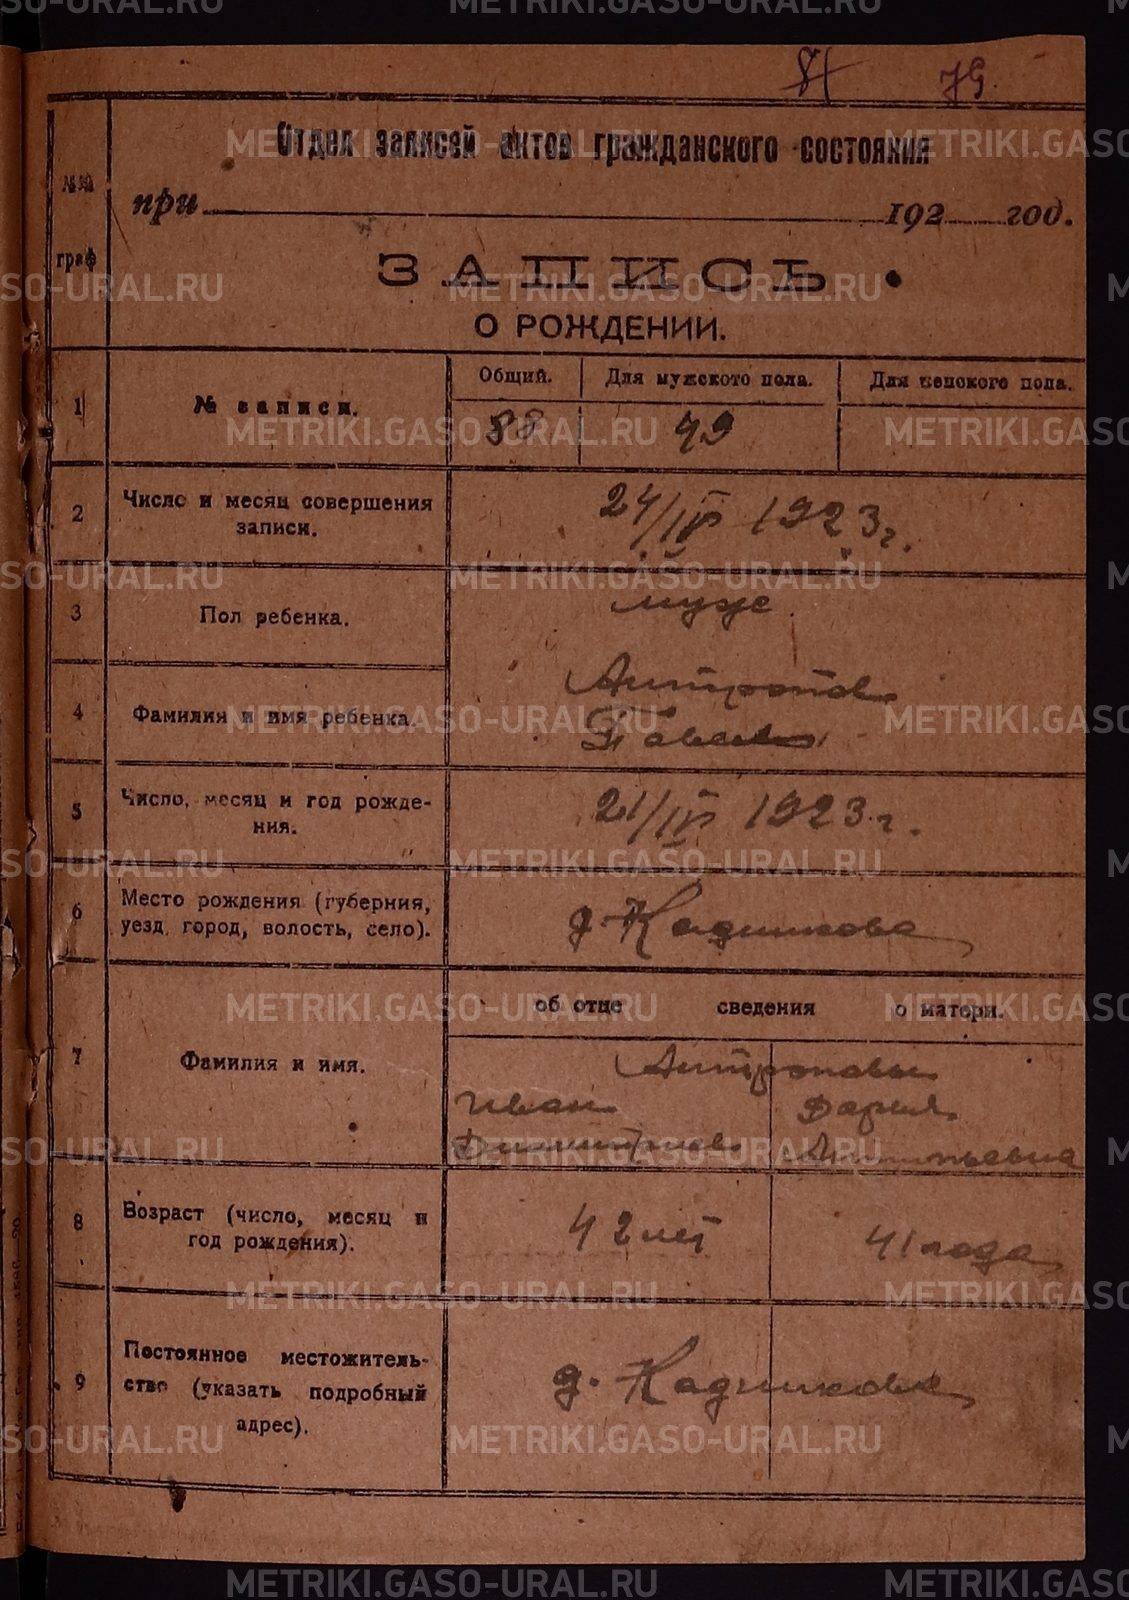 METRIKI.GASO-URAL.RU
79.
Отдел записей актов гражданского состояния
№№ граф
при 192 год.
ЗАПИСЬ.
О РОЖДЕНИИ.
1 № записи. Общий. Для мужского пола. Для женского пола.
88 49
2 Число и месяц совершения записи. 24/IV 1923 г.
3 Пол ребенка. муж
4 Фамилия и имя ребенка. Антропов
Павел
5 Число, месяц и год рожде-
ния. 21/IV 1923 г.
6 Место рождения (губерния,
уезд, город, волость, село). д. Кадникова
об отце сведения о матери.
7 Фамилия и имя. Антроповы
Иван Дария
Димитриев Антипьевна
8 Возраст (число, месяц и
год рождения). 42 лет 41 года
9 Постоянное местожитель-
ство (указать подробный
адрес). д. Кадникова